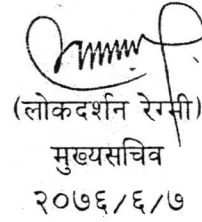 (लोकदर्शन रेग्मी)
मुख्यसचिव
२०७६/६/७